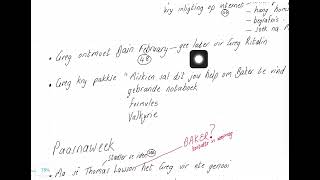 kry inligting op internet
48
hang
begrafnis
soek na
Greg ontmoet Bain February – gee later vir Greg Ritalin
48
Greg kry pakkie "Miskien sal dit jou help om Baker te vind
gebrande notaboek
Formules
Valkyrie
Paasnaweek
BAKER?
Aa sê Thomas Lawson het Greg vir ete genooi